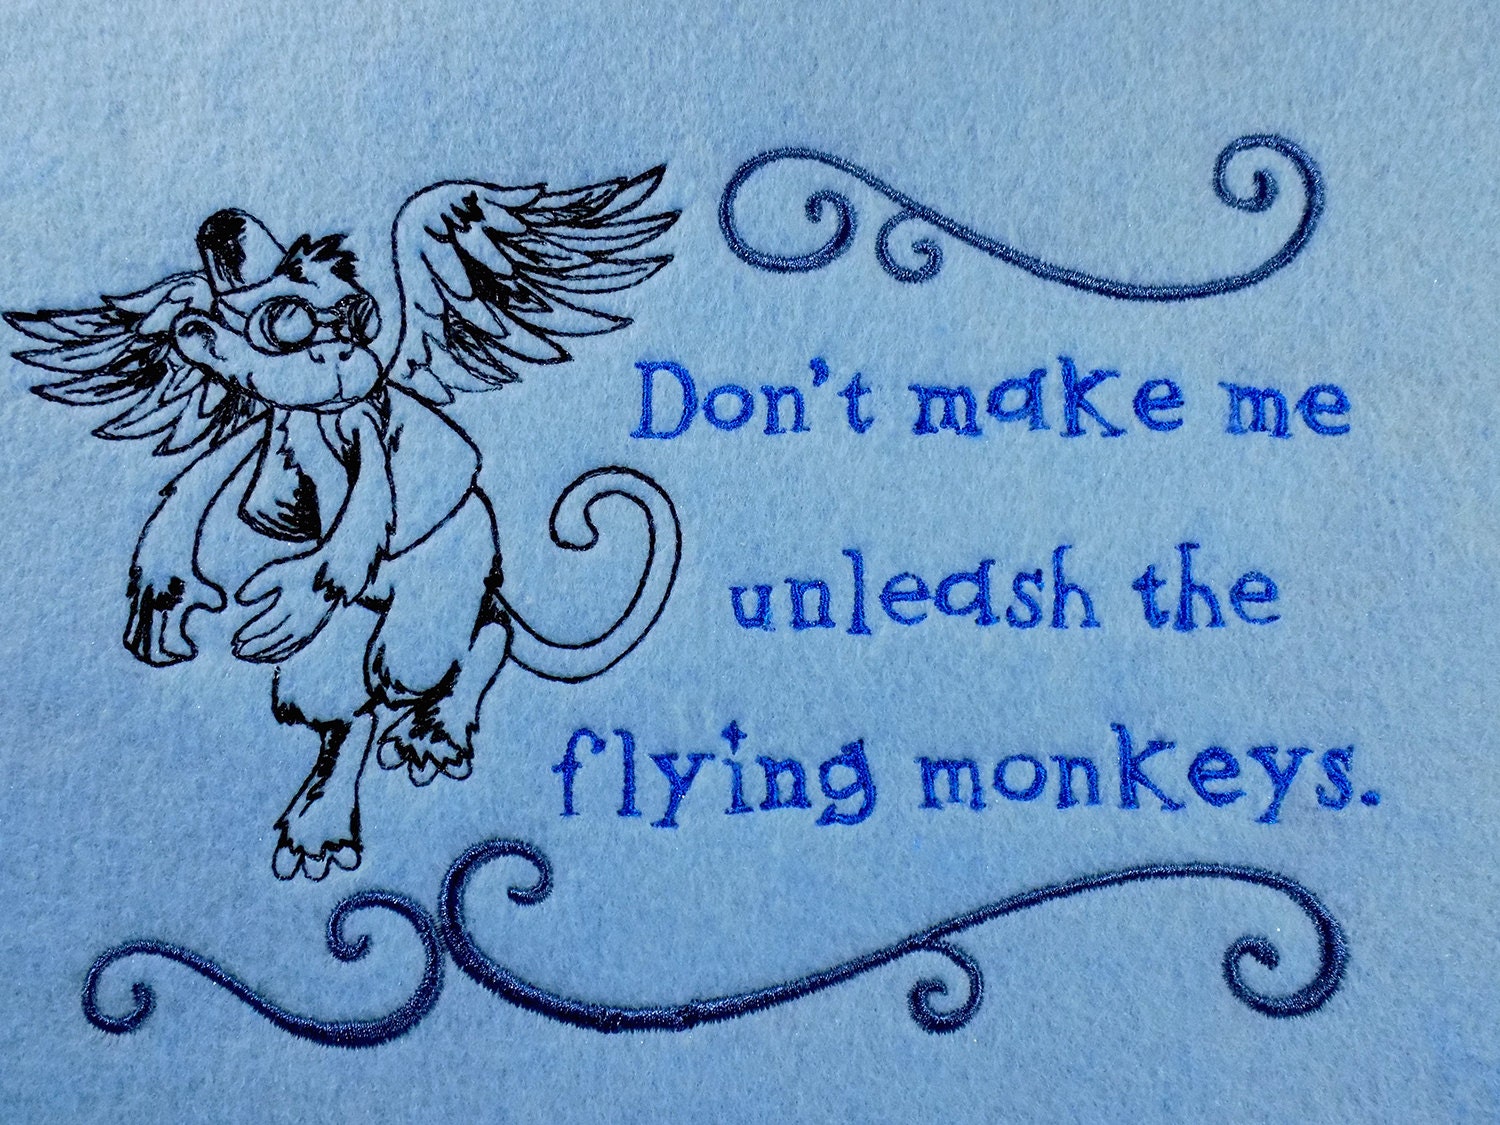 Don't make me
unleash the
flying monkeys.